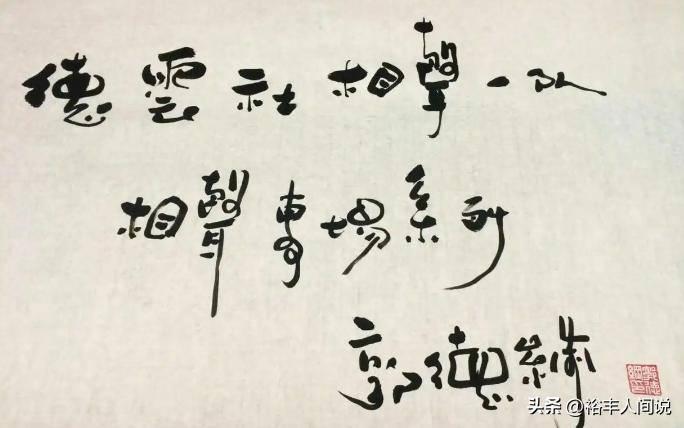 德雲社相聲一队
相聲專場系列
郭德綱
头条 @裕丰人间说